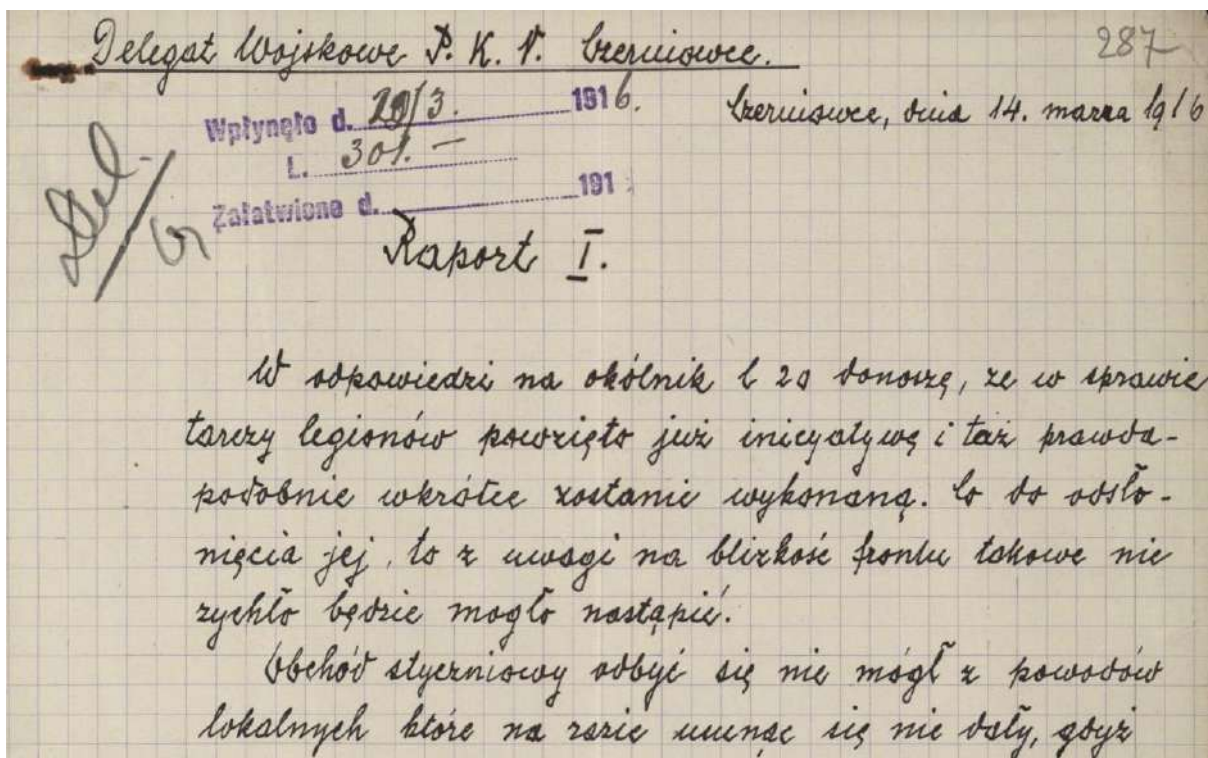 Delegat Wojskowe P. K. N. Czerniowce.
287
Wpłynęło d. 20/3. 1916.
Czerniowce, dnia 14. marca 1916
L. 301. —
Załatwione d. 191
Raport I.
W odpowiedzi na okólnik l 20 donoszę, że w sprawie
tarczy legionów powzięto już inicyatywę i taż prawda-
podobnie wkrótce zostanie wykonaną. Co do odsło-
nięcia jej, to z uwagi na blizkość frontu takowe nie
rychło będzie mogło nastąpić.
Obchód styczniowy odbyć się nie mógł z powodów
lokalnych które na razie usunąć się nie dały, gdyż